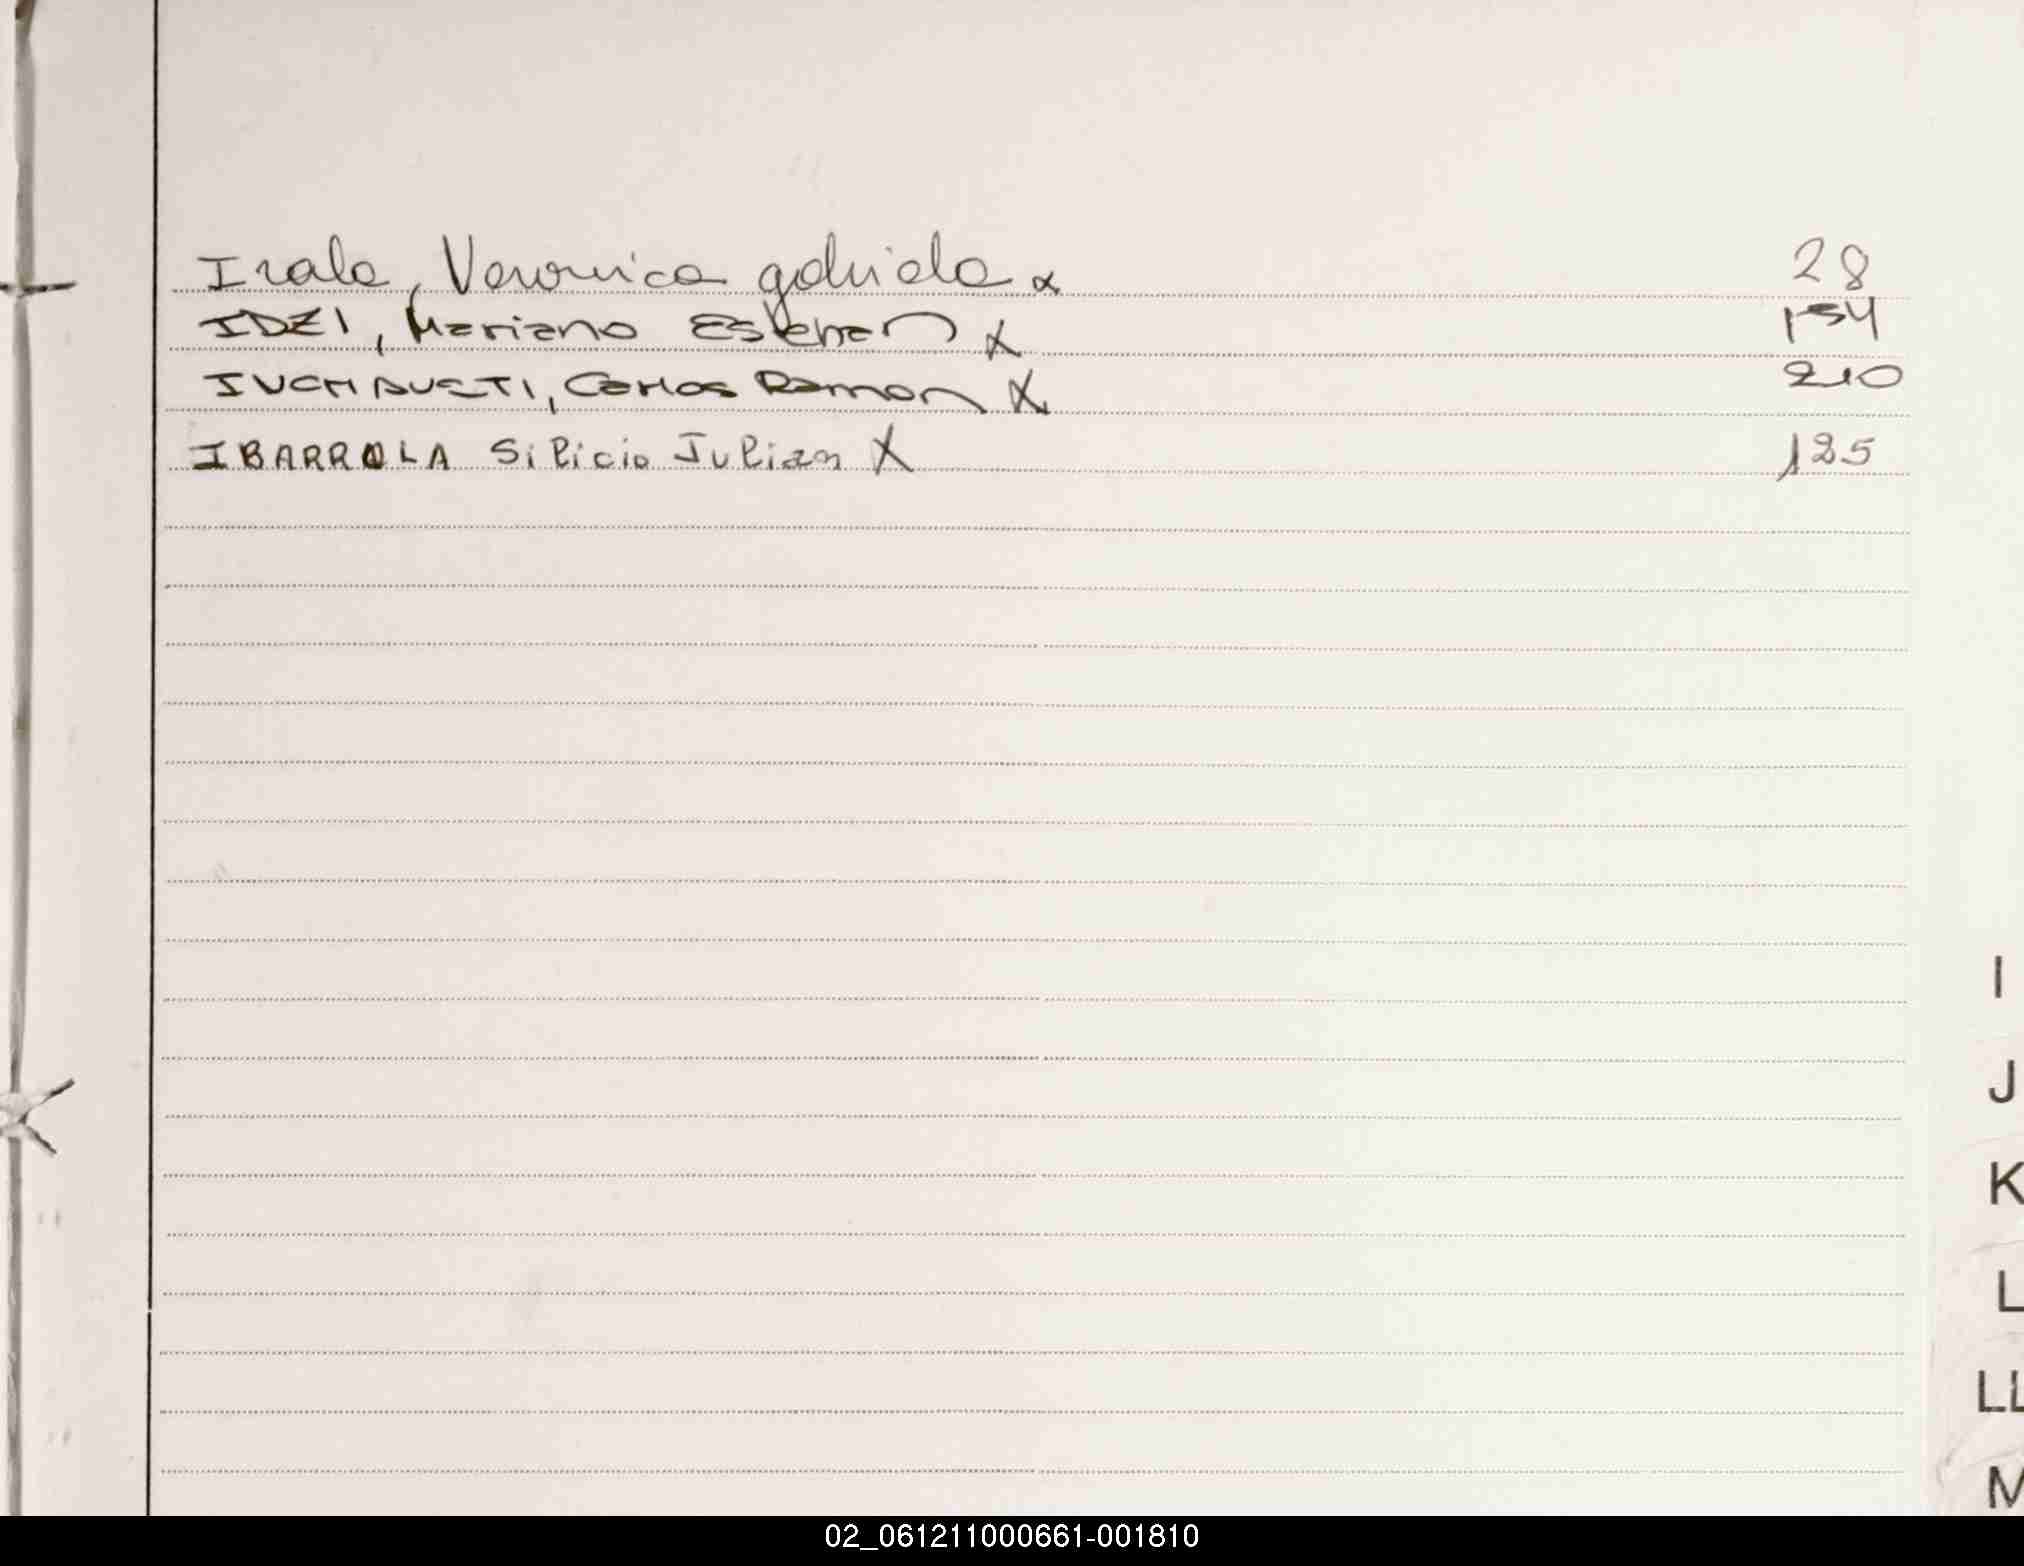 Irala, Veronica gabriela x 28
IDZI, Mariano Esteban X 154
Carlos Ramon X 210
IBARROLA Silicio Julian X 125
I
J
K
L
LL
M
02_061211000661-001810